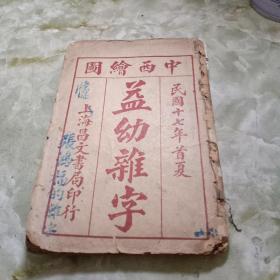 中西繪圖
民國十七年首夏
益幼雜字
上海昌文書局印行
張鴻冠的